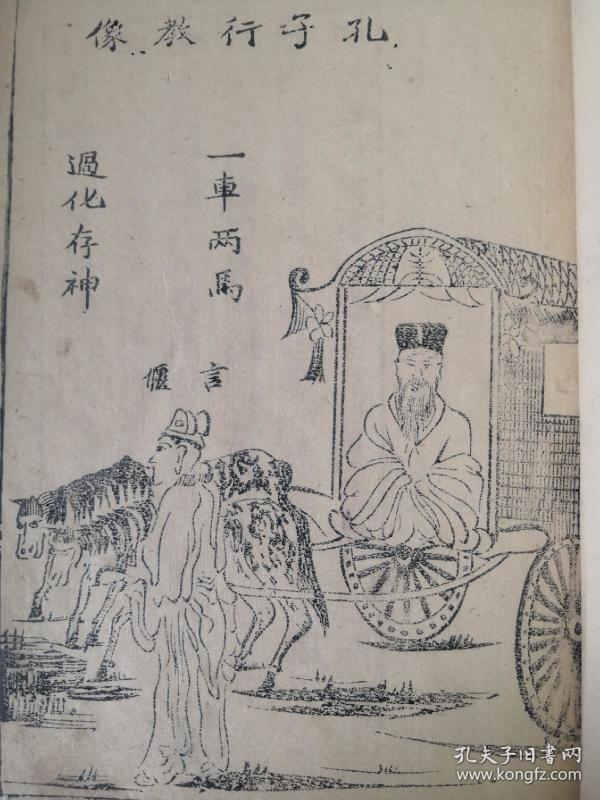 孔子行教像
一車兩馬
過化存神
言偃
孔夫子旧书网
www.kongfz.com